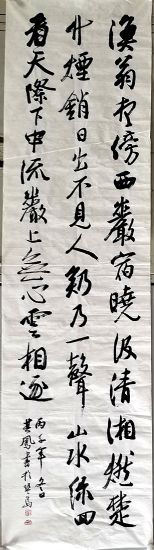 漁翁夜傍西巖宿曉汲清湘燃楚
竹煙銷日出不見人欸乃一聲山水綠回
看天際下中流巖上無心雲相逐
丙子年冬
書於